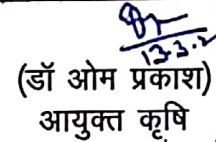 13.3.2
(डॉ ओम प्रकाश)
आयुक्त कृषि